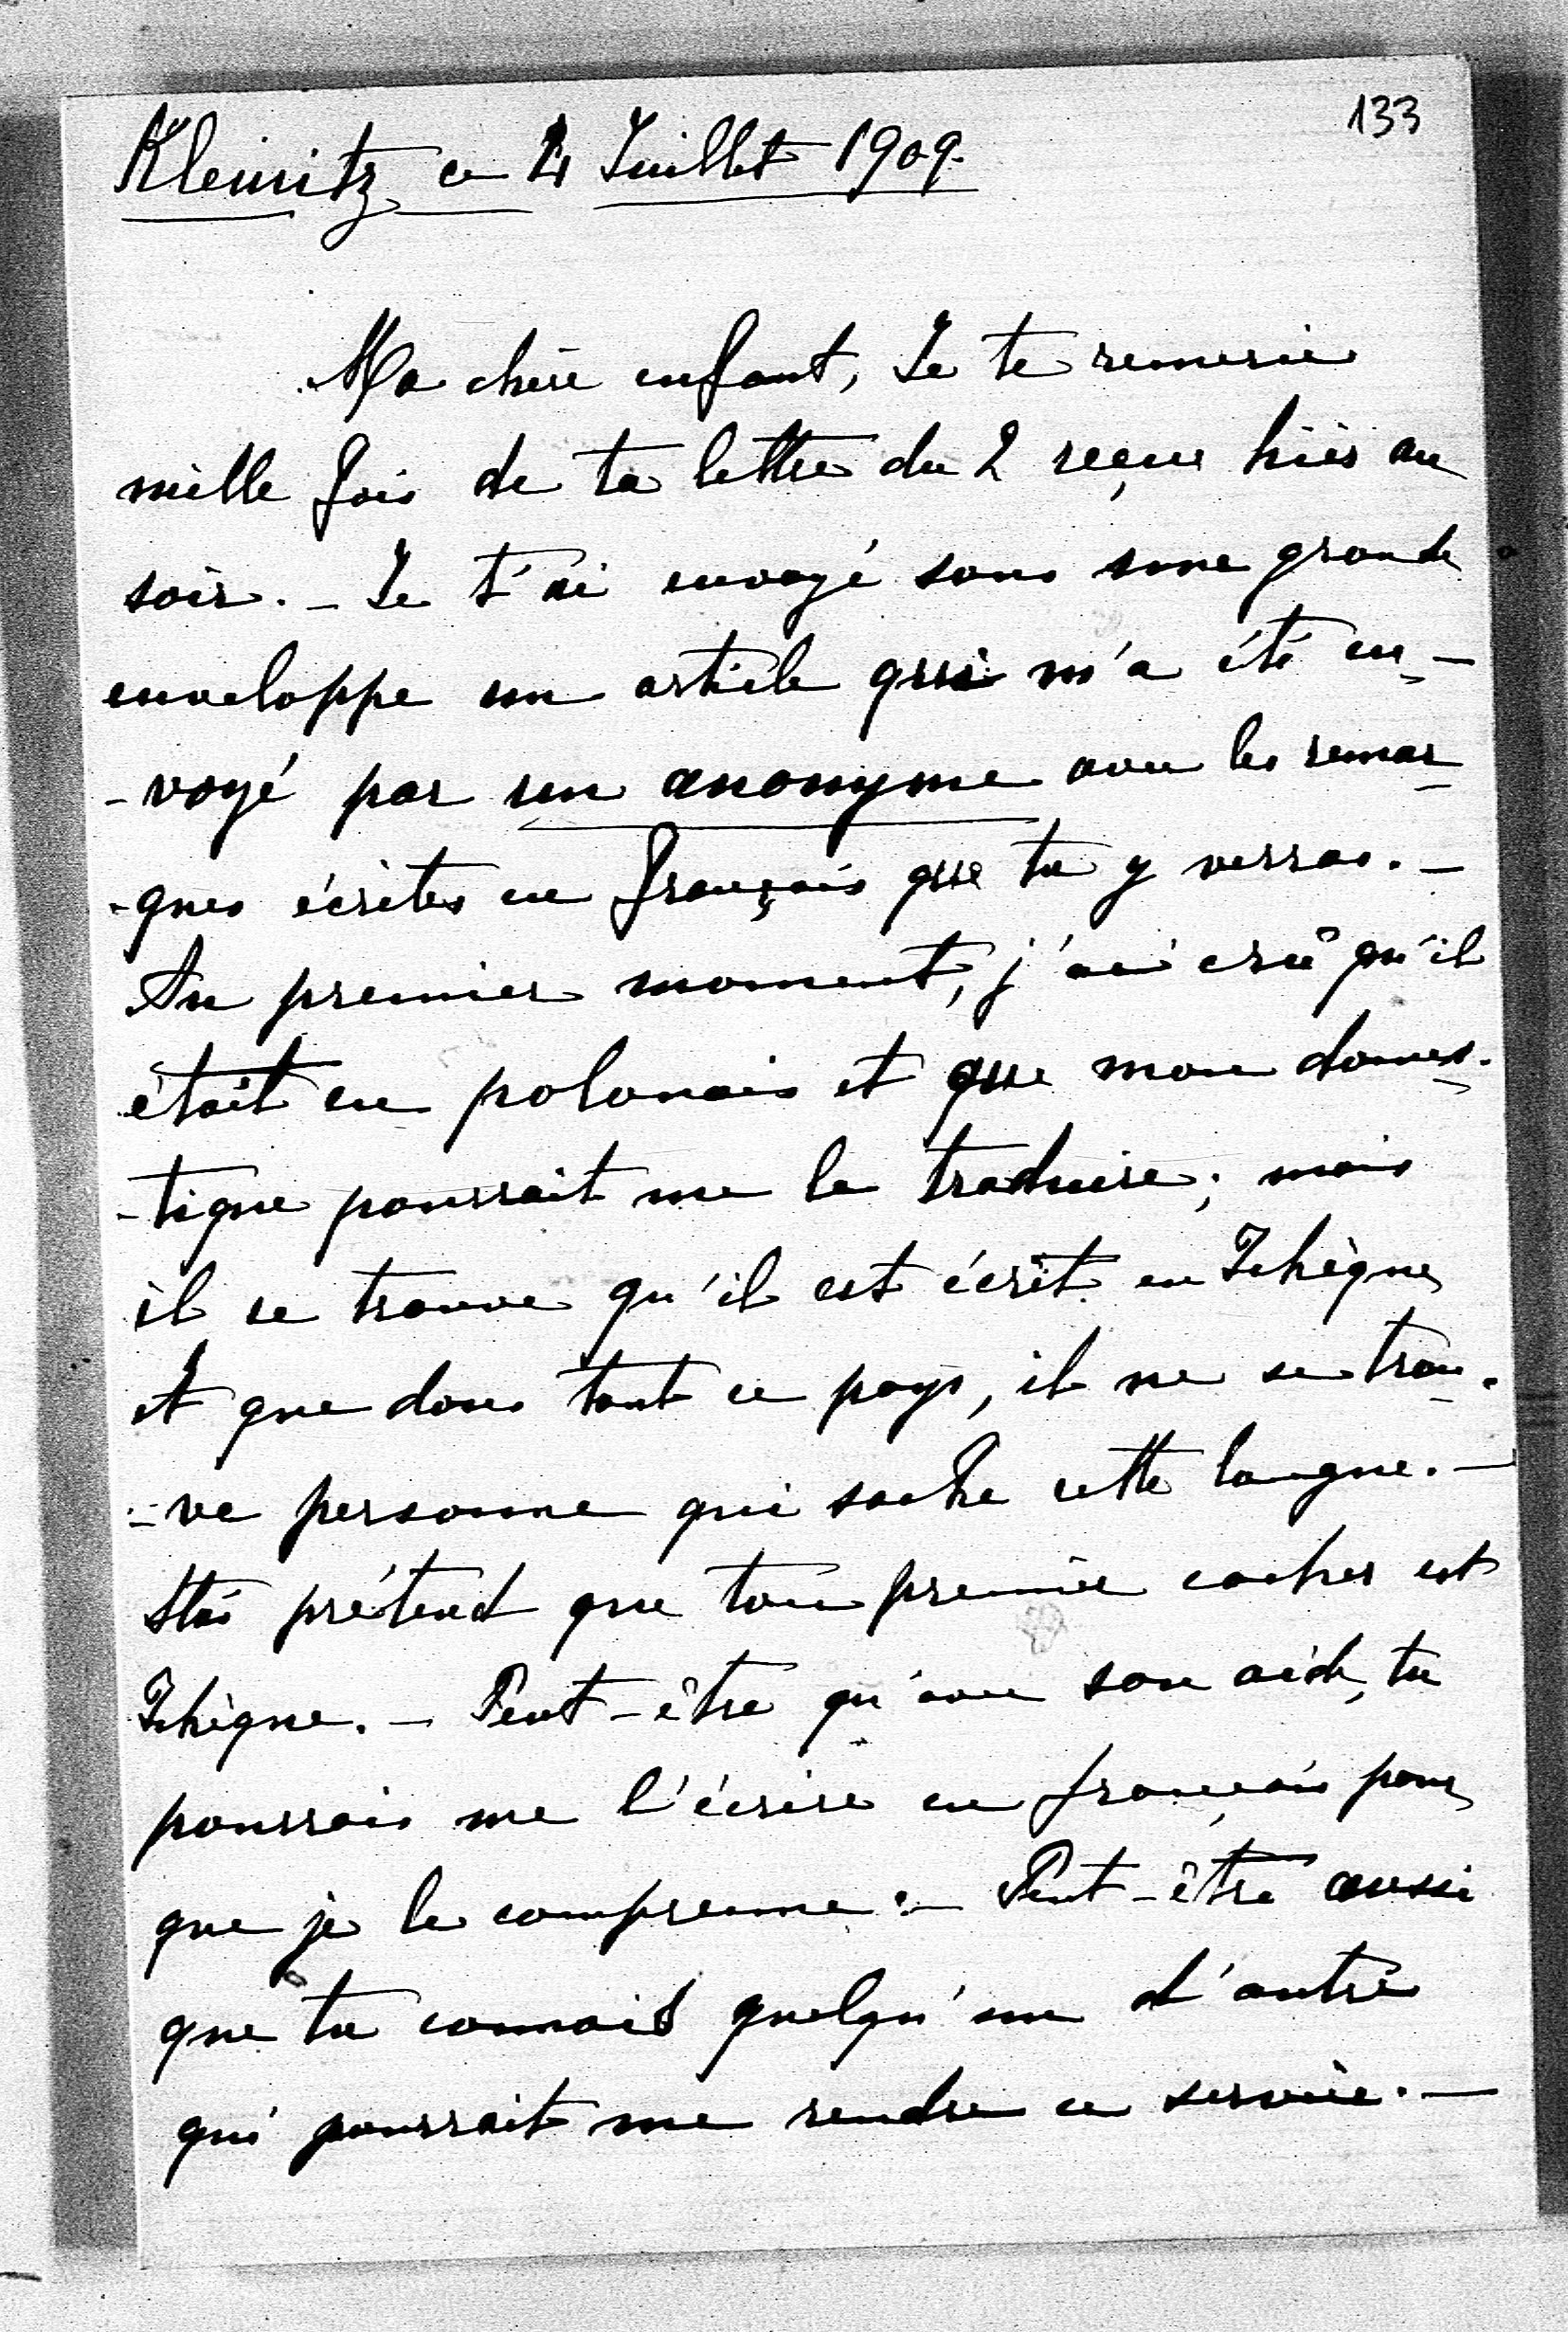 133
Kleinitz ce 4 Juillet 1909.
Ma chère enfant, Je te remercie
mille fois de ta lettre du 2 reçue hièr au
soir. _ Je t'ai envoyé sous une grande
enveloppe un article qui m'a été en_
_voyé par un anonyme avec les remar_
_ques écrites en français que tu y verras. _
Au premier moment, j'ai crû qu'il
était en polonais et que mon domes_
_tique pourrait me le traduire; mais
il se trouve qu'il est écrit en Tchèque
et que dans tout ce pays, il ne se trou_
_ve personne qui sache cette langue. _
Stás prétend que ton premier cocher est
Tchèque. _ Peut-être qu'avec son aide, tu
pourrais me l'écrire en français pour
que je le comprenne. _ Peut-être aussi
que tu connais quelqu'un d'autre
qui pourrait me rendre ce service. _